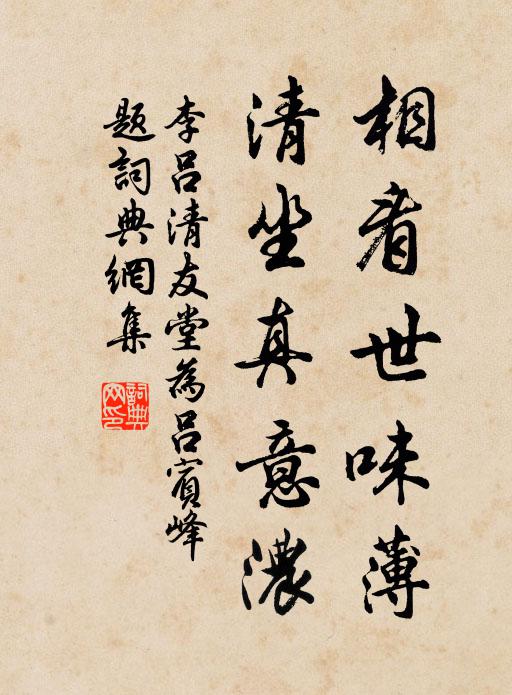 相看世味薄
清坐真意濃
李呂清友堂為呂賓峰
題詞典網集
詞典網印